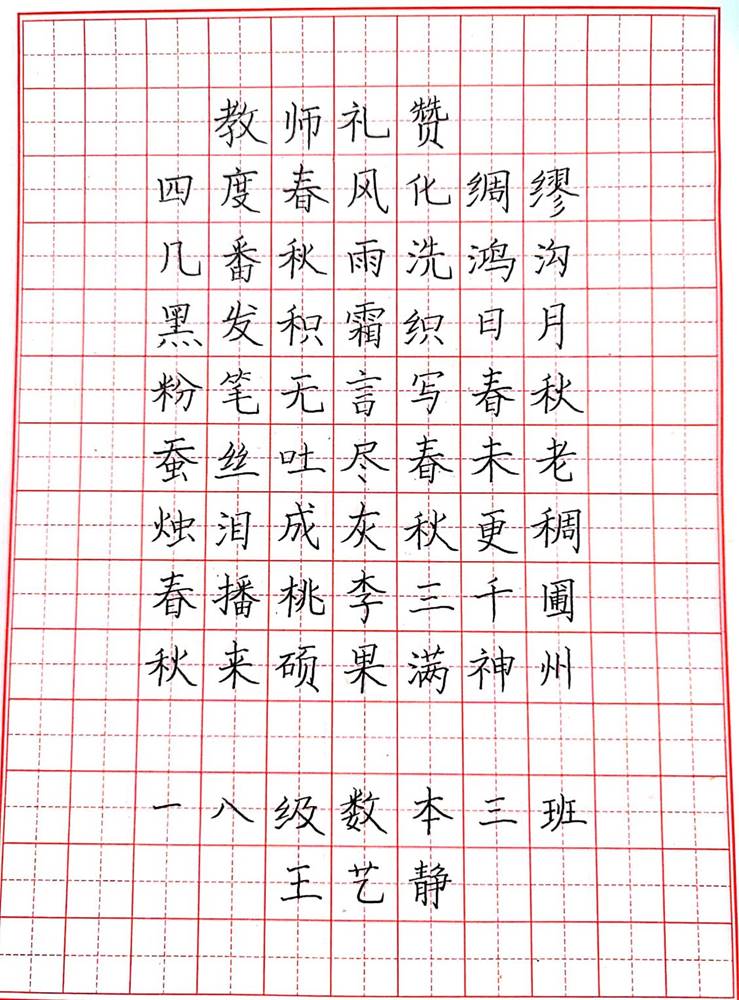 教师礼赞
四度春风化绸缪
几番秋雨洗鸿沟
黑发积霜织日月
粉笔无言写春秋
蚕丝吐尽春未老
烛泪成灰秋更稠
春播桃李三千圃
秋来硕果满神州
一八级数本三班
王艺静